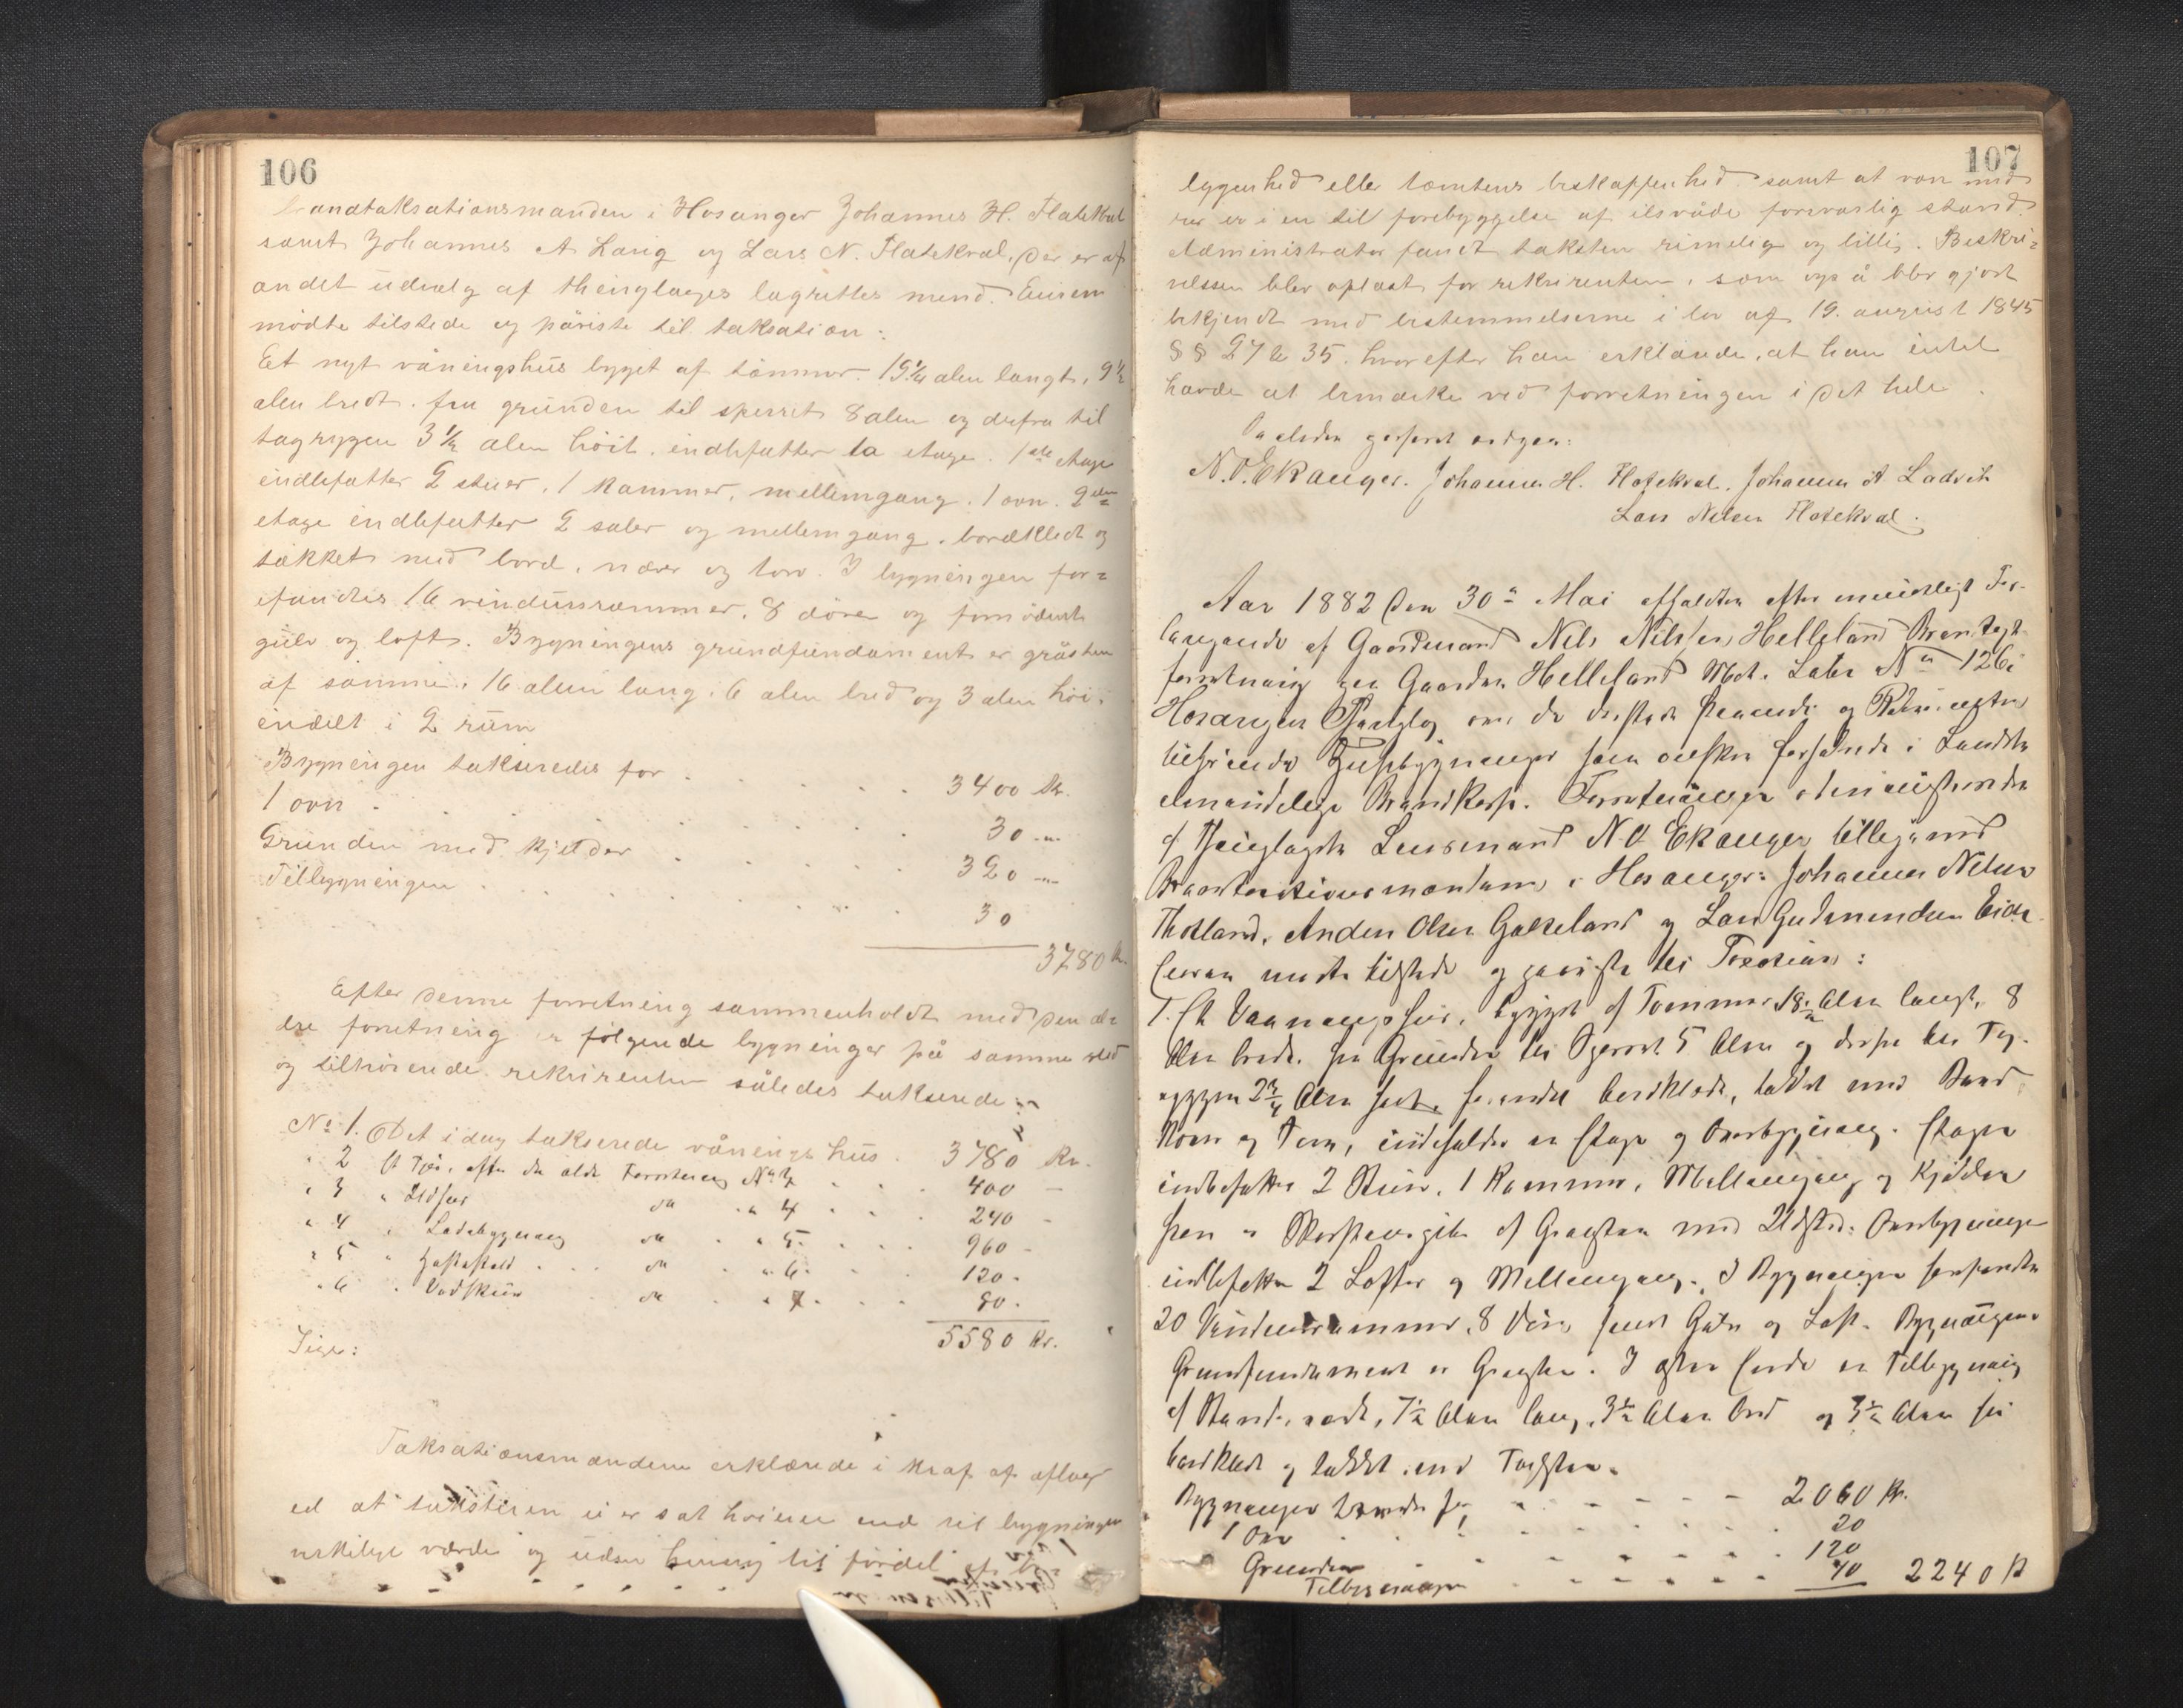 106
brandtaksationsmanden i Hosanger Johannes H. Flatekval
samt Johannes A Lavig og Lars N. Flatekval, der er af
andet udvalg af thinglagets lagrettes mend. Eieren
mödte tilstede og påviste til taksation:
Et nyt våningshus bygget af tömmer. 19 1/4 alen langt, 9 1/2
alen bredt. fra grunden til sperret 8 alen og derfra til
tagrygen 3 1/2 alen höit. indbefatter to etage. 1ste etage
indbefatter 2 stuer, 1 kammer, mellemgang, 1 ovn. 2den
etage indbefatter 2 saler og mellemgang, bordkledt og
tækket med bord, næver og torv. I bygningen for=
efandtes 16 vinduesrammer, 8 döre og fornödent
gulv og loft. Bygningens grundfundament er gråsten
af samme, 16 alen lang, 6 alen bred og 3 alen höi,
indelt i 2 rum
Bygningen takseredes for . . . 3400 Kr.
1 ovn . . . 30 -"-
Grunden med kjelder . . . 320 -"-
Tilbygningen . . . 30
3780 Kr.
Efter denne forretning sammenholdt med den æl=
dre forretning er fölgende bygninger på samme sted
og tilhörende rekvirenten således takserede:
No 1. Det i dag takserede våningshus . 3780 Kr.
" 2 Et efter den ældre Forretning No 2 . . 400 —
" 3 " Ildhus do . " 4 . . . 240 -
" 4 " Ladebygning do . " 5. . . . 960 -
" 5 " Hestestald . . . do . " 6. . . . 120 -
" 6 " Vedskur do . " 7. . . . 80 .
5580 Kr.
Siger:
Taksationsmændene erklærede i kraft af aflagt
ed at taksten ei er sat höiere end til bygningens
virkelige værdi og uden hensyn til fordel af be=
107
liggenhed eller tomtens beskaffenhed samt at ovn med
rör er i en til forebyggelse af ilsvåde forsvarlig stand.
Administrator fandt taksten rimelig og billig. Beskri=
velsen blev oplæst for rekvirenten, som også blev gjort
bekjendt med bestemmelserne i lov af 19. august 1845
§§ 27 & 35. hvorefter han erklærede, at han intet
havde at bemærke ved forretningen i det hele.
N. O. Ekanger. Johannes H. Flatekval. Johannes A Ladvik
Lars Nilsen Flatekval.
Aar 1882 den 30te Mai afholdtes efter mundtligt For-
langende af Gaardmand Nils Nilsen Helleland Brandtaxt
forretning paa Gaarden Helleland Mat. Løbe No 126 i
Hosanger Thinglag over de derstede staaende og Rekvirenten
tilhørende Husbygninger som ønskes forsikrede i Landets
almindelige Brandkasse. Forretningen administreredes
af Thinglagets Lensmand N. O Ekanger tilligemed
Brandtaxationsmændene i Hosanger: Johannes Nilsen
Anders Olsen Gakseland og Lars Gudmundsen Eide.
Eieren mødte tilstede og paaviste til Taxation:
1. Et Vaaningshus, bygget af Tømmer 18 1/2 Alen langt, 8
Alen bredt. fra Grunden til Sperret 5 Alen og derfra til Tag-
ryggen 2 3/4 Alen høit, bordklædt, tækket med Bord
Næver og Torv, indeholder en Etage og Overbygning. Etagen
indbefatter 2 Stuer, 1 Kammer, Mellemgang og Kjøkken
hvori er Skorstenspibe af Graasten med Ildsted. Overbygningen
indbefatter 2 Lofter og Mellemgang. I Bygningen forefandtes
20 Vinduesrammer, 8 Døre samt Gulv og Loft. Bygningens
Grundfundament er Graasten. I østre Ende er Tilbygning
af Standværk, 7 1/2 Alen lang, 3 1/2 Alen bred og 3 1/2 Alen høi
bordklædt og tækket med Tagsten.
Bygningen for . . . 2060 Kr.
1 Ovn . . . 20
Grunden . . . 120
Tilbygningen . . . 40 2240 Kr